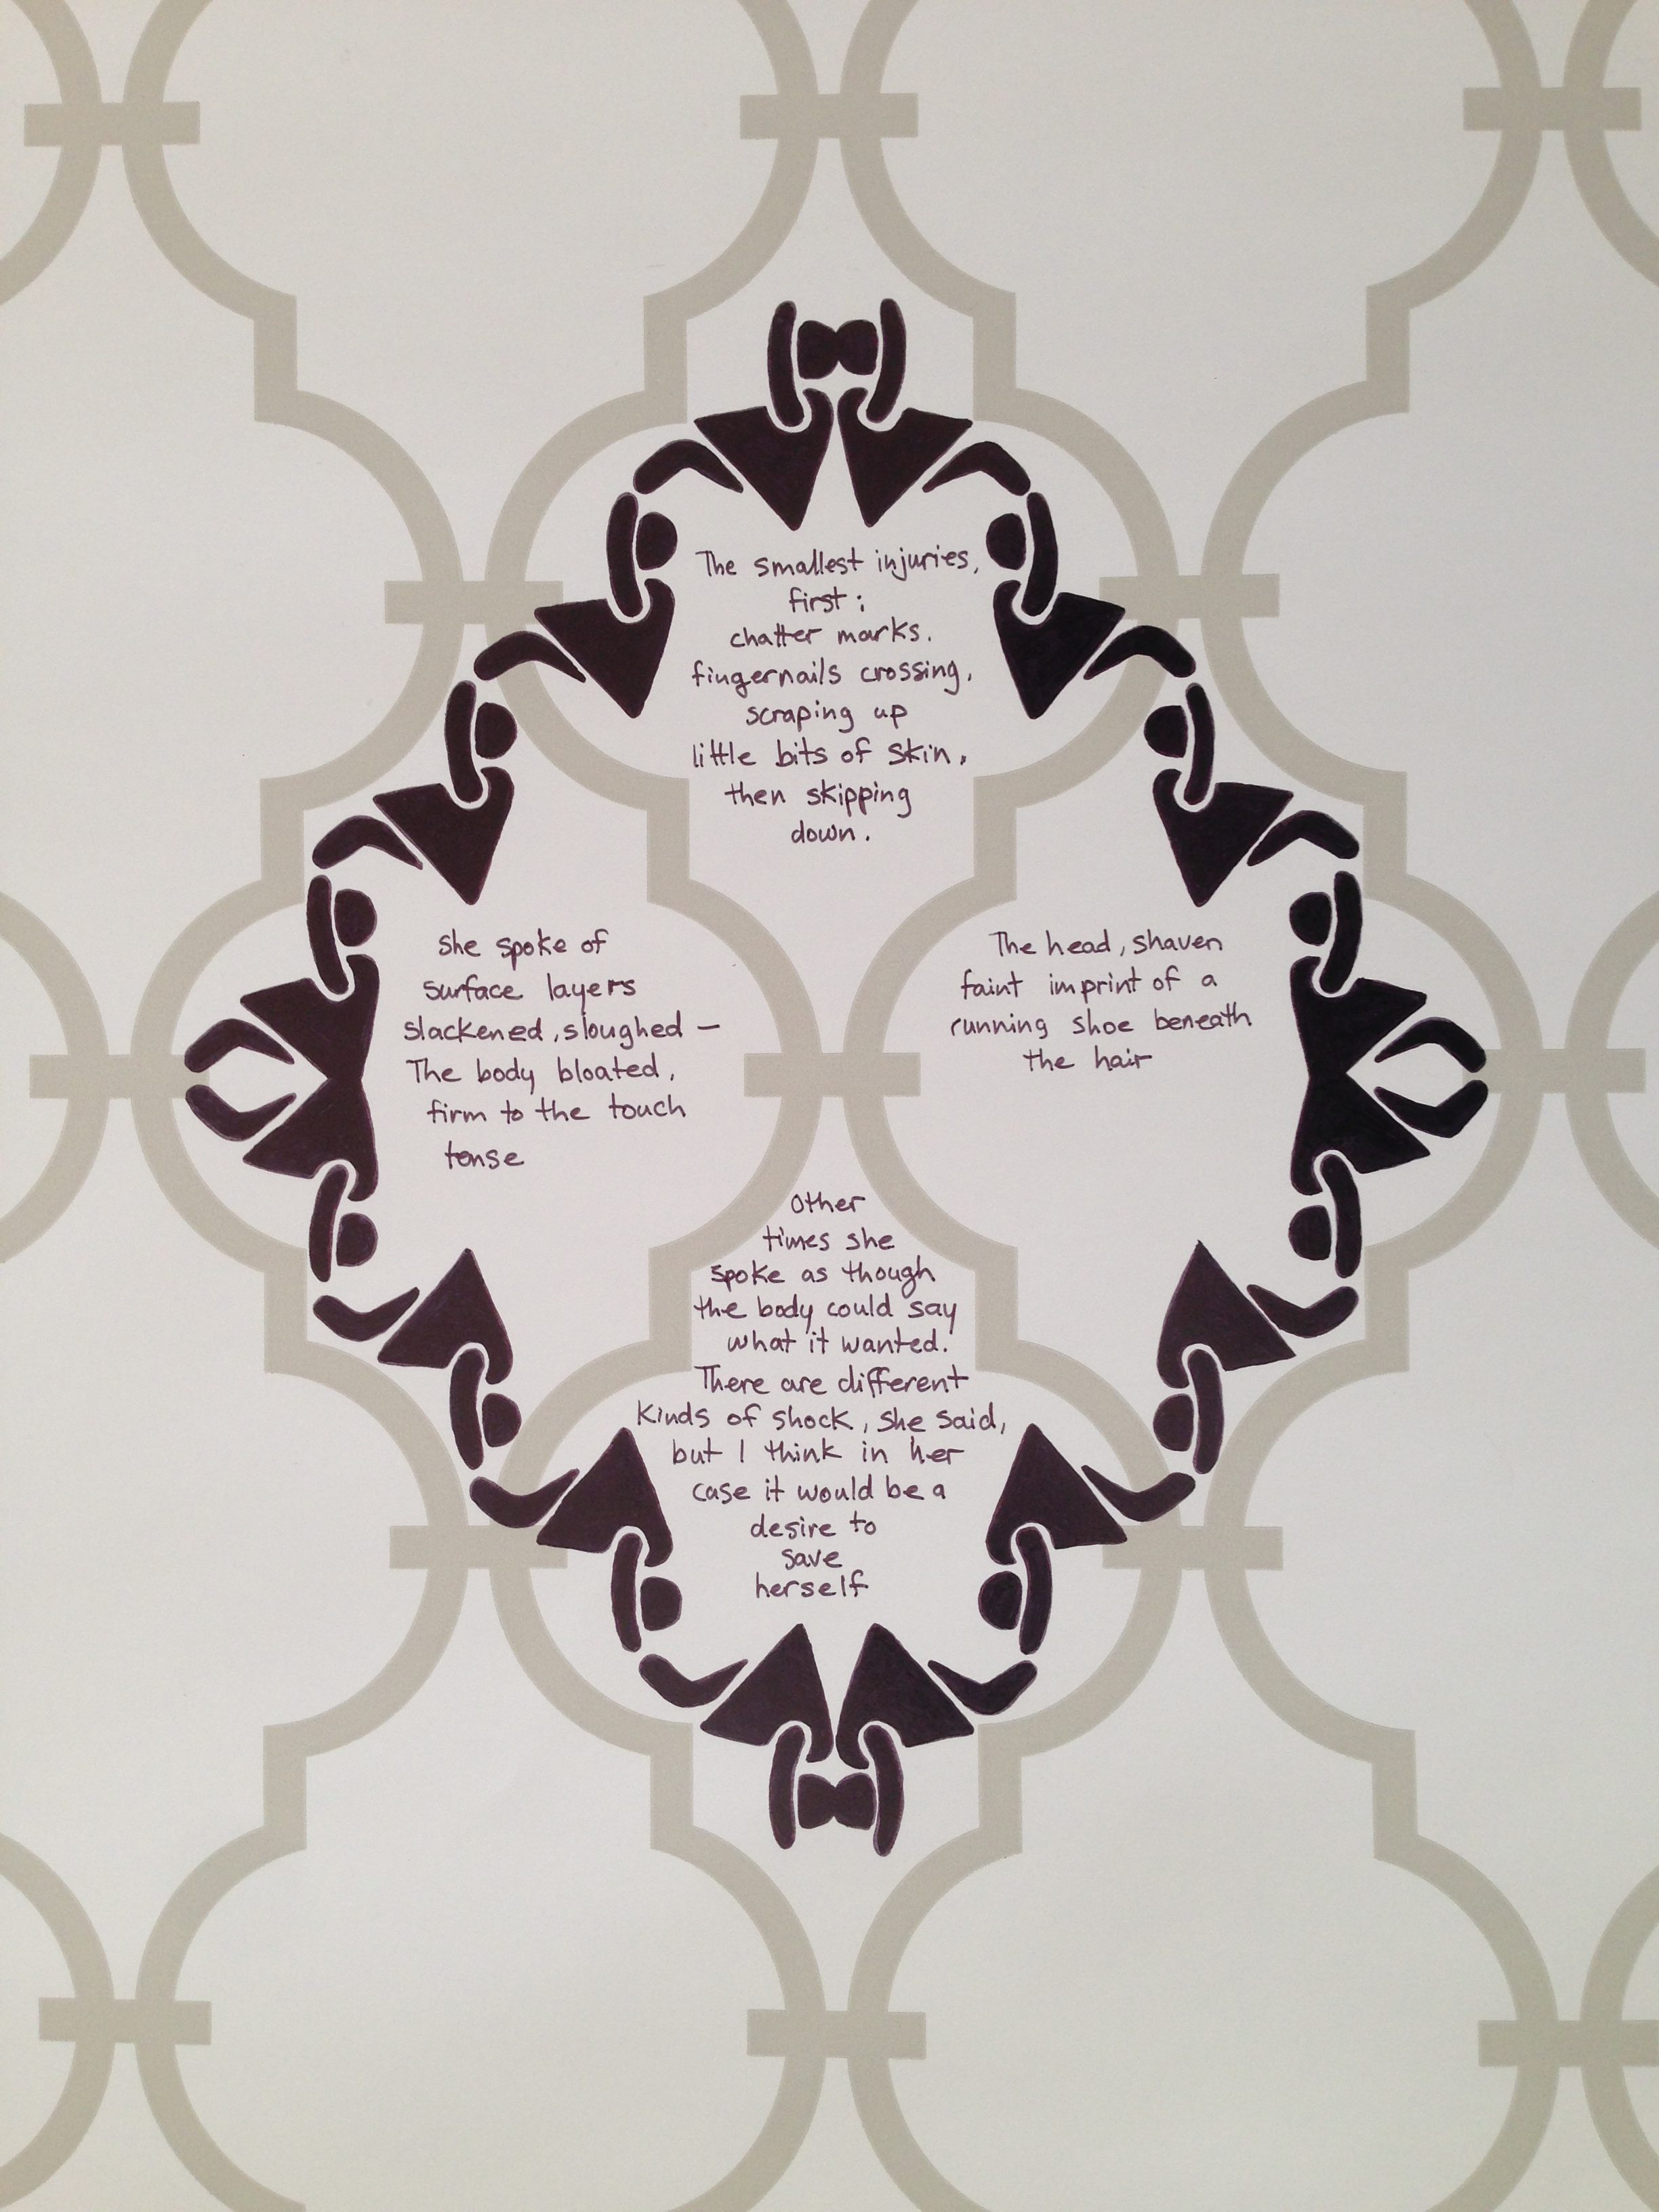 The smallest injuries,
first:
chatter marks.
fingernails crossing,
scraping up
little bits of skin,
then skipping
down.
She spoke of
surface layers
slackened, sloughed —
The body bloated,
firm to the touch
tense
The head, shaven
faint imprint of a
running shoe beneath
the hair
Other
times she
spoke as though
the body could say
what it wanted.
There are different
kinds of shock, she said,
but I think in her
case it would be a
desire to
save
herself